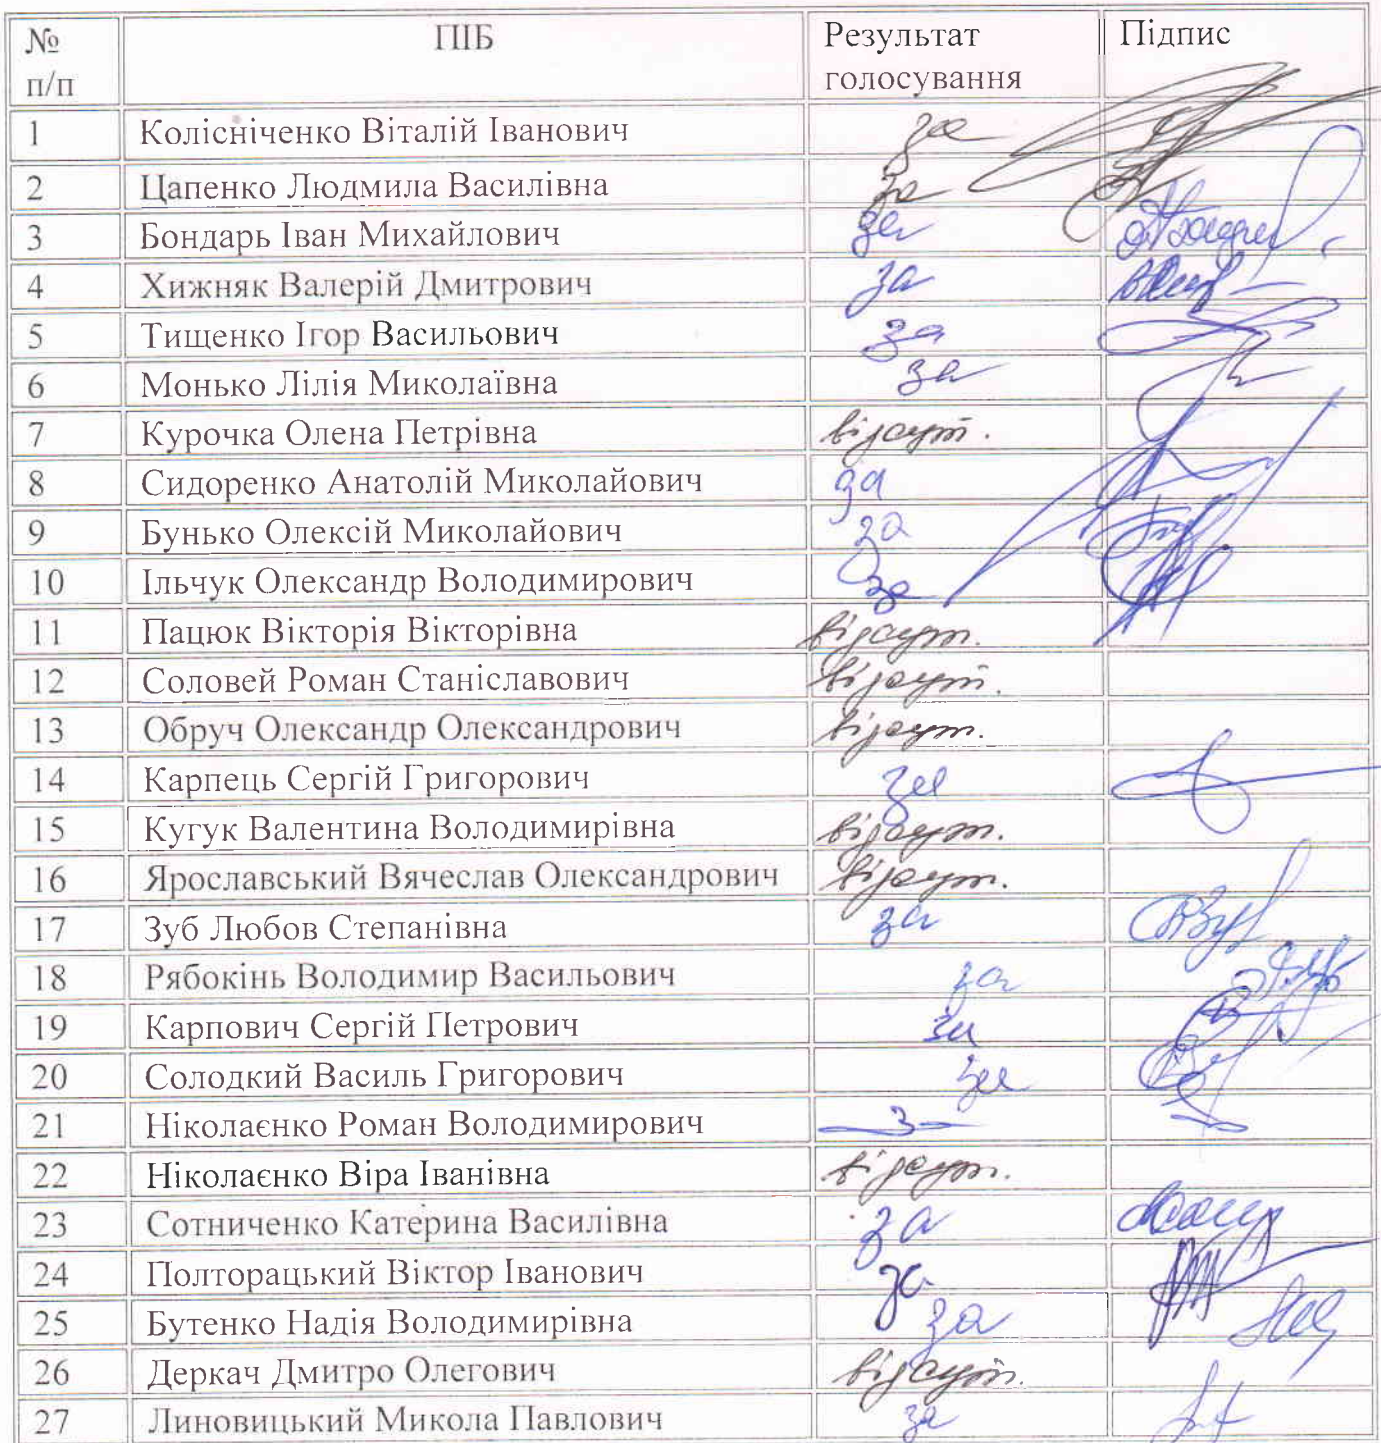 № п/п ПІБ Результат голосування Підпис
1 Колісніченко Віталій Іванович за
2 Цапенко Людмила Василівна за
3 Бондарь Іван Михайлович за
4 Хижняк Валерій Дмитрович за
5 Тищенко Ігор Васильович за
6 Монько Лілія Миколаївна за
7 Курочка Олена Петрівна відсут.
8 Сидоренко Анатолій Миколайович за
9 Бунько Олексій Миколайович за
10 Ільчук Олександр Володимирович за
11 Пацюк Вікторія Вікторівна відсут.
12 Соловей Роман Станіславович відсут.
13 Обруч Олександр Олександрович відсут.
14 Карпець Сергій Григорович за
15 Кугук Валентина Володимирівна відсут.
16 Ярославський Вячеслав Олександрович відсут.
17 Зуб Любов Степанівна за
18 Рябокінь Володимир Васильович за
19 Карпович Сергій Петрович за
20 Солодкий Василь Григорович за
21 Ніколаєнко Роман Володимирович
22 Ніколаєнко Віра Іванівна відсут.
23 Сотниченко Катерина Василівна за
24 Полторацький Віктор Іванович за
25 Бутенко Надія Володимирівна за
26 Деркач Дмитро Олегович відсут.
27 Линовицький Микола Павлович за